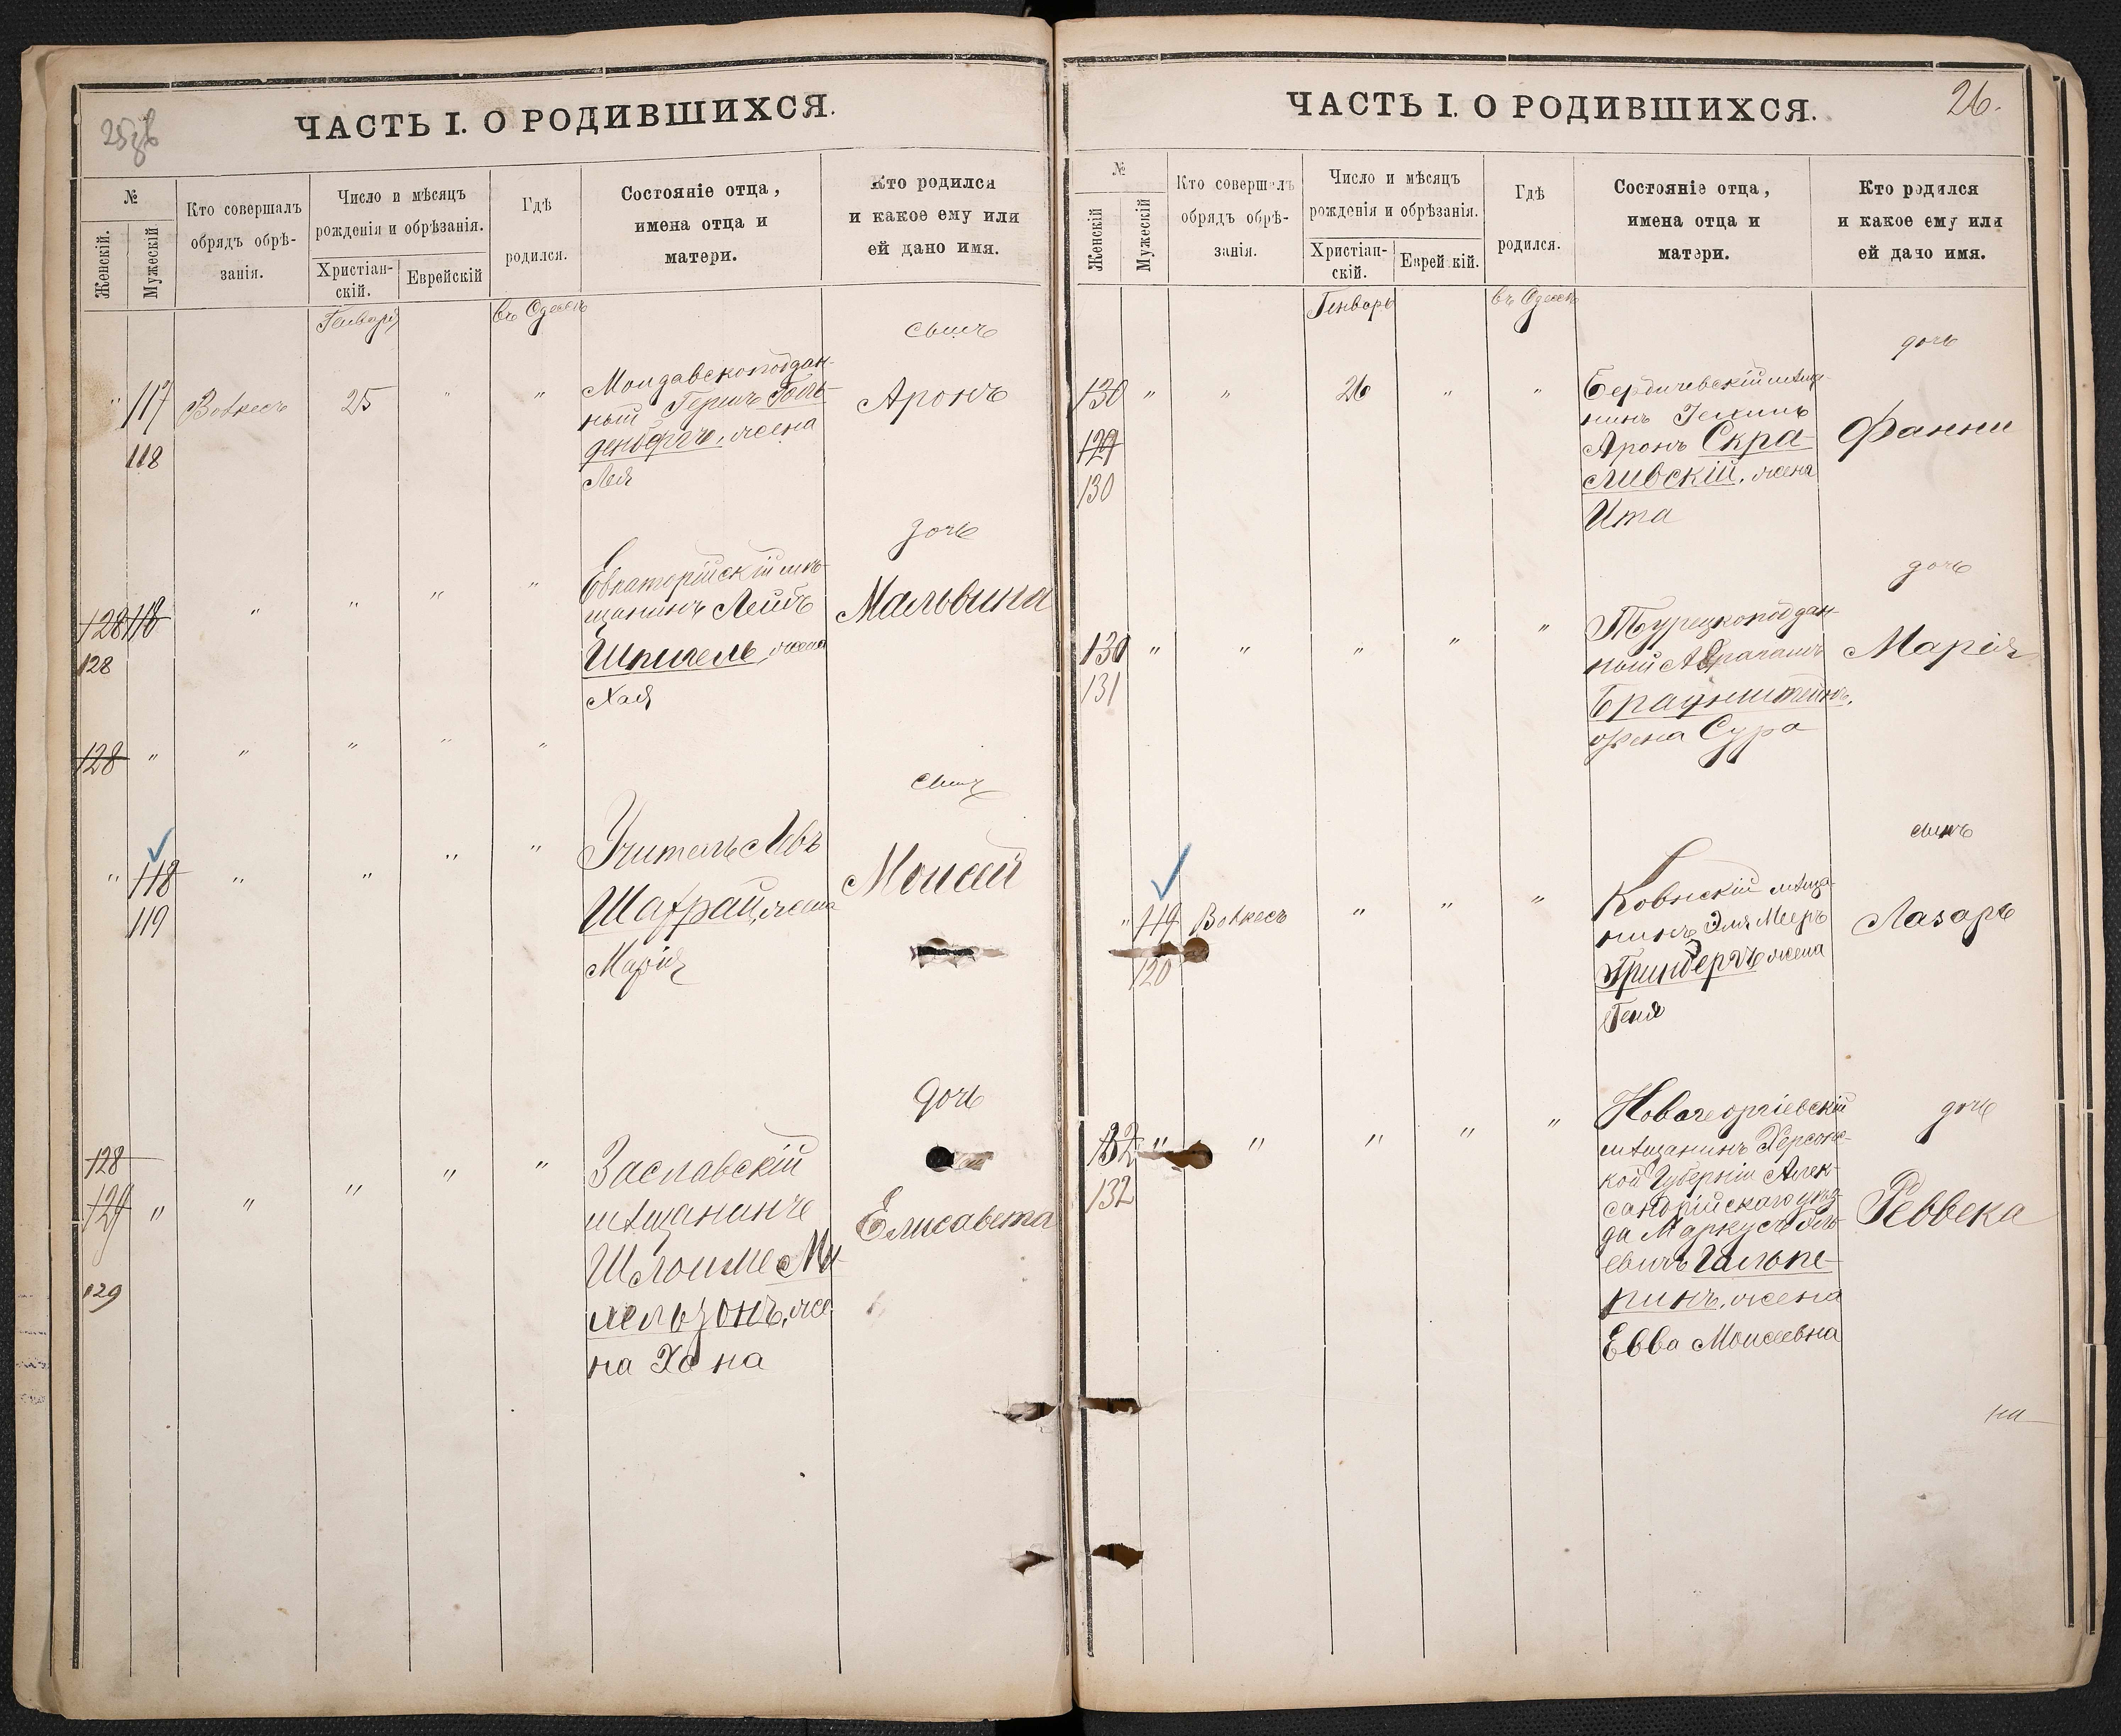 ЧАСТЬ I. О РОДИВШИХСЯ.
№
Женскій.
Мужескій
Кто совершалъ
обрядъ обрѣ-
занія.
Число и мѣсяцъ
рожденія и обрѣзанія.
Христіан-
скій.
Еврейскій
Гдѣ
родился.
Состояніе отца,
имена отца и
матери.
Кто родился
и какое ему или
ей дано имя.
Генварь
въ Одессѣ
сынъ
" 117 25 " "
118
Молдавскоподдан-
ный Гершъ Голь-
денбергъ, жена
Лея
Аронъ
дочь
128 118 " " " "
128
Евпаторійскій мѣ-
щанинъ Лейбъ
Шпигель, жена
Хая
Мальвина
128 " " " " "
сынъ
" 118 " " " "
119
Учитель Левъ
Шатрайц, жена
Марія
Моисей
дочь
128
129 " " " " "
129
Заславскій
мѣщанинъ
Шлоиме
жена Хана
Елисавета
ЧАСТЬ I. О РОДИВШИХСЯ.
26.
№
Женскій
Мужескій
Кто совершалъ
обрядъ обрѣ-
занія.
Число и мѣсяцъ
рожденія и обрѣзанія.
Христіан-
скій.
Еврейскій.
Гдѣ
родился.
Состояніе отца,
имена отца и
матери.
Кто родился
и какое ему или
ей дано имя.
Генварь
въ Одессѣ
дочь
130 " " 26 " "
129
130
Бердичевскій мѣща-
нинъ
Аронъ Скра-
ливскій, жена
Ита
Фанни
дочь
130 " " " " "
131
Турецкоподдан-
ный Абрагамъ
Браунштейнъ,
жена Сура
Марія
сынъ
" 119 " " "
120
Ковнскій мѣща-
нинъ Эля Мееръ
Гринбергъ жена
Геня
Лазарь
дочь
132 " " " " "
132
Новогеоргіевскій
мѣщанинъ Херсонс-
кой Губерніи Алек-
сандрійскаго уѣз-
да Маркус
евичъ Гальпе-
ринъ, жена
Евва Моисеевна
Реввека